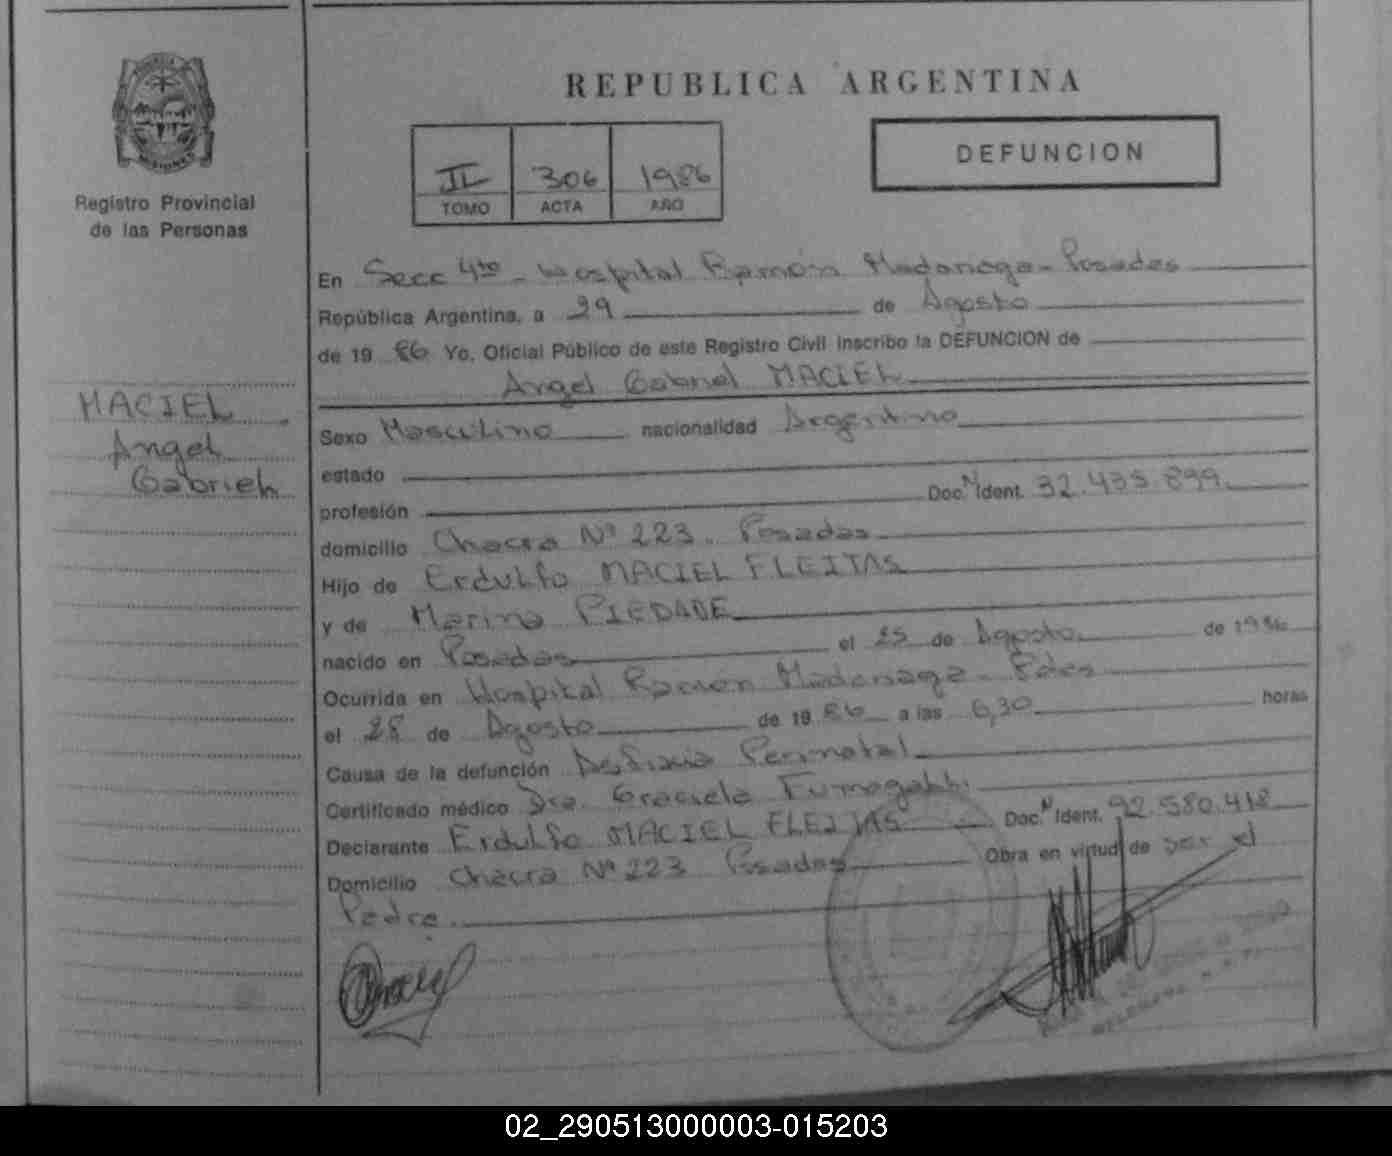 MISIONES
Registro Provincial
de las Personas
MACIEL
Angel
Gabriel
REPUBLICA ARGENTINA
II 306 1986
TOMO ACTA AÑO
DEFUNCION
En Secc 4ta - Hospital Ramón Madariaga - Posadas
República Argentina, a 29 de Agosto
de 19 86 Yo, Oficial Público de este Registro Civil inscribo la DEFUNCION de
Angel Gabriel MACIEL
Sexo Masculino nacionalidad Argentino
estado
profesión Doc. N° Ident. 32.435.899
domicilio Chacra Nº 223. Posadas
Hijo de Erdulfo MACIEL FLEITAS
y de Marina PIEDADE
nacido en Posadas el 25 de Agosto de 1986
Ocurrida en Hospital Ramón Madariaga - Pdas
el 28 de Agosto de 19 86 a las 6,30 horas
Causa de la defunción Asfixia Perinatal
Certificado médico Dra. Graciela Fumagalli
Declarante Erdulfo MACIEL FLEITAS Doc. N° Ident. 92.580.418
Domicilio Chacra Nº 223 Posadas Obra en virtud de ser el
Padre.
02_290513000003-015203